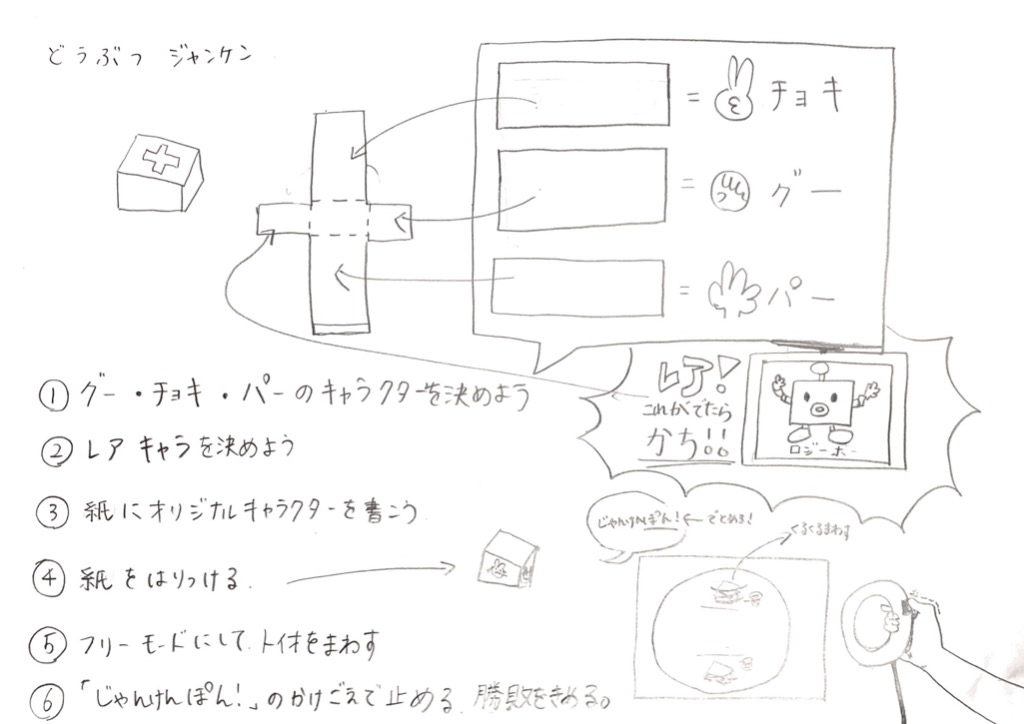 どうぶつ ジャンケン
= チョキ
= グー
= パー
レア!
これがでたら
かち!!
ロジーボー
① グー・チョキ・パーのキャラクターを決めよう
② レアキャラを決めよう
③ 紙にオリジナルキャラクターを書こう
④ 紙をはりつける
⑤ フリーモードにして、トイオをまわす
⑥ 「じゃんけんぽん!」のかけごえで止める、勝敗をきめる。
じゃんけんぽん! ← でとめる!
くるくるまわす